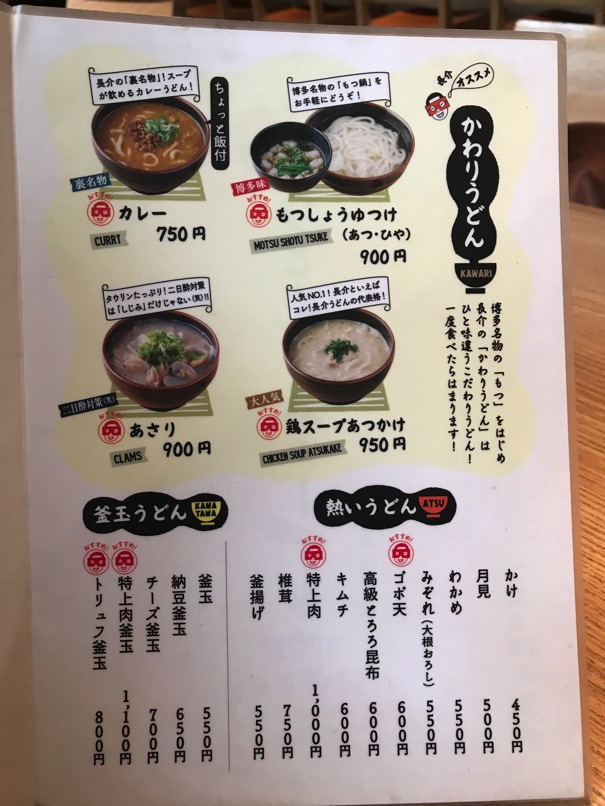 長介
オススメ
かわりうどん
KAWARI
博多名物の「もつ」をはじめ
長介の「かわりうどん」は
ひと味違うこだわりうどん！
一度食べたらはまります！
博多名物の「もつ鍋」を
お手軽にどうぞ！
博多味
おすすめ！
もつしょうゆつけ
（あつ・ひや）
MOTSU SHOYU TSUKE
900円
長介の「裏名物」！スープ
が飲めるカレーうどん！
ちょっと飯付
裏名物
おすすめ！
カレー
CURRY
750円
人気NO.1！長介といえば
コレ！長介うどんの代表格！
大人気
おすすめ！
鶏スープあつかけ
CHICKEN SOUP ATSUKAKE
950円
タウリンたっぷり！二日酔対策
は「しじみ」だけじゃない(笑)!!
二日酔対策(笑)
おすすめ！
あさり
CLAMS
900円
熱いうどん
ATSU
かけ 450円
月見 500円
わかめ 550円
みぞれ（大根おろし） 550円
おすすめ！
ゴボ天 600円
高級とろろ昆布 600円
キムチ 600円
おすすめ！
特上肉 1,000円
椎茸 750円
釜揚げ 550円
釜玉うどん
KAMA
TAMA
釜玉 550円
納豆釜玉 650円
チーズ釜玉 700円
おすすめ！
特上肉釜玉 1,100円
おすすめ！
トリュフ釜玉 800円